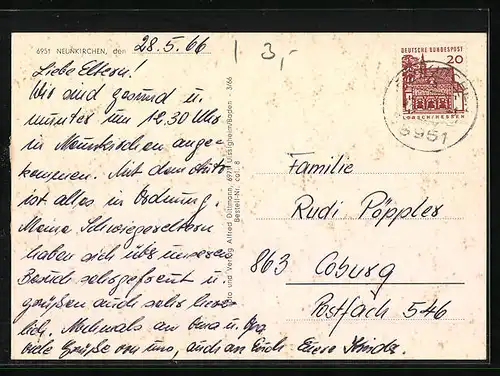 6951 NEUNKIRCHEN, den 28.5.66
3,-
Liebe Eltern!
Wir sind gesund u.
munter um 12,30 Uhr
in Neunkirchen ange-
kommen. Mit dem Auto
ist alles in Ordnung.
Meine Schwiegereltern
haben sich über unseren
Besuch sehr gefreut u.
grüßen auch sehr herz-
lich. Nochmals an Oma u. Opa
viele Grüße von uns, auch an Euch Eure Kinder.
Foto und Verlag Alfred Dittmann, 6971 Uissigheim/Baden 3/66
Bestell-Nr. col. 8
DEUTSCHE BUNDESPOST
20
LORSCH/HESSEN
6951
Familie
Rudi Pöppler
863 Coburg
Postfach 546